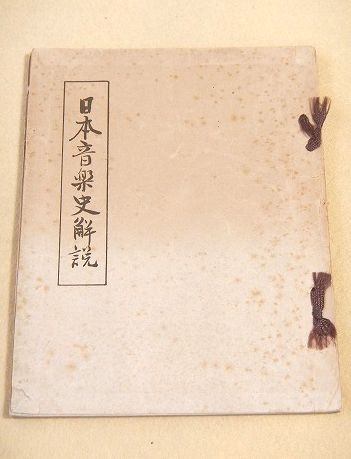 日本音楽史解説